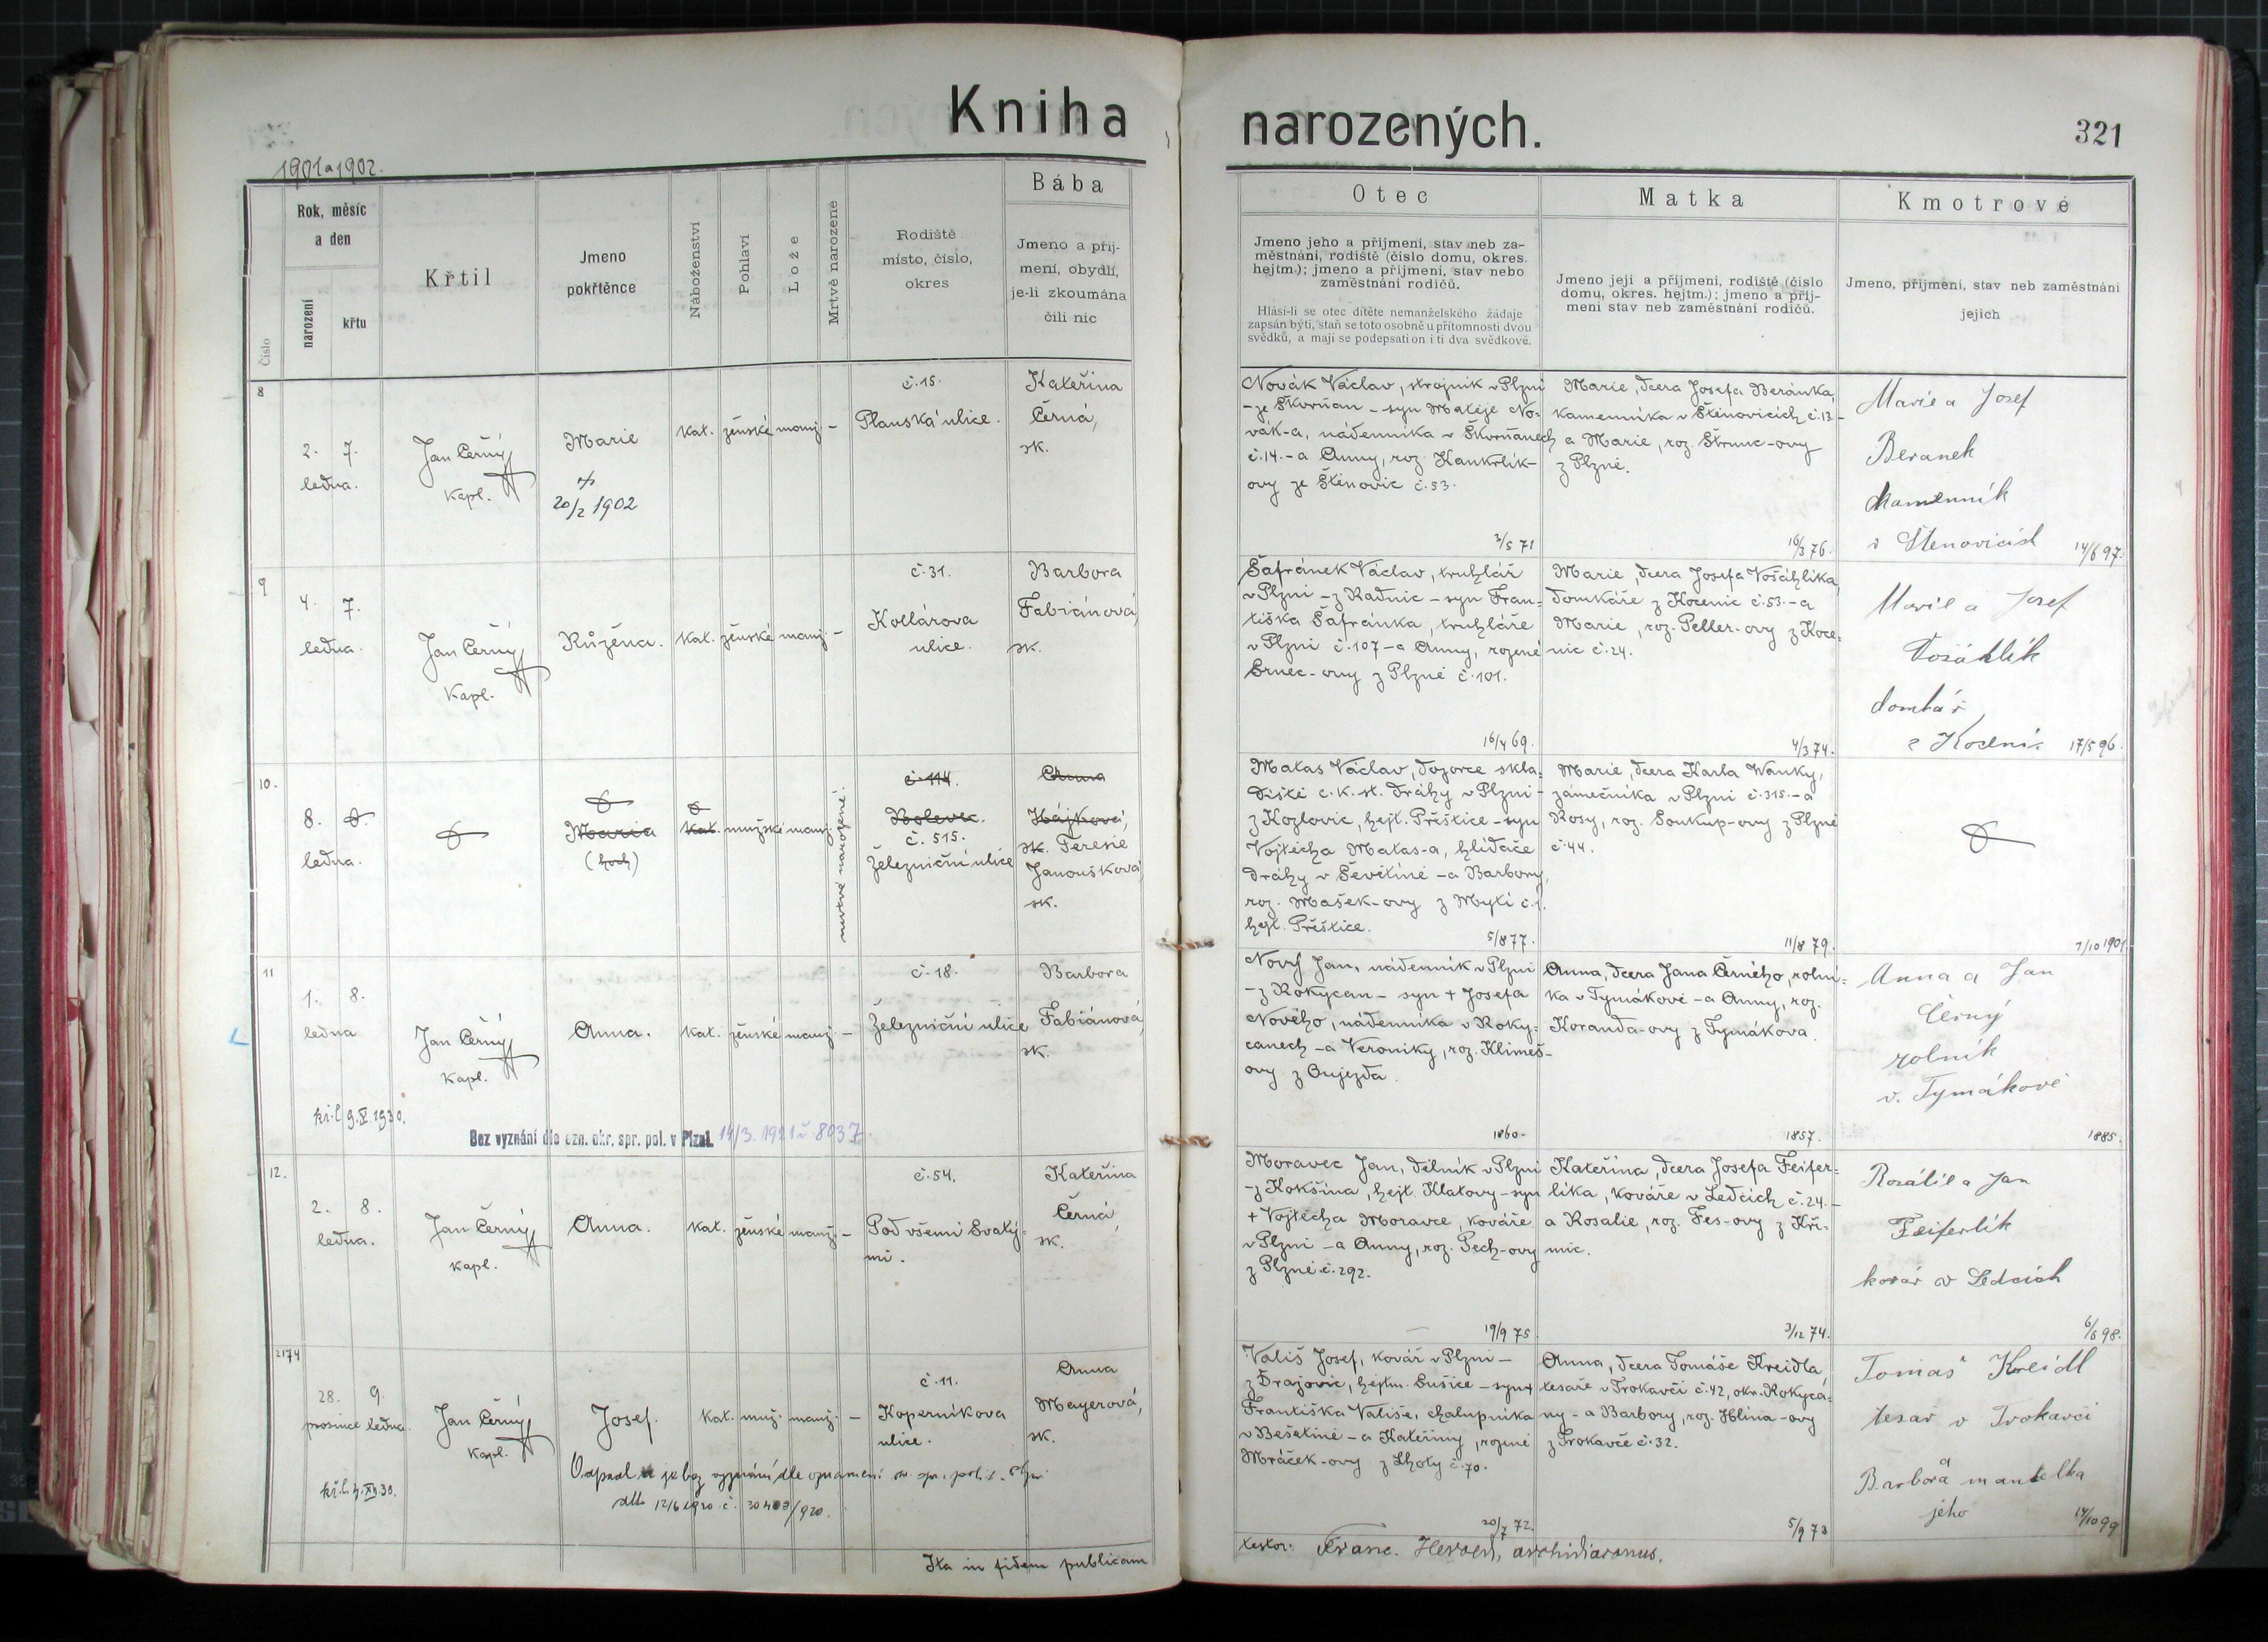 Kniha narozených.
321
1901 a 1902.
Číslo
Rok, měsíc
a den
narození
křtu
Křtil
Jmeno
pokřtěnce
Náboženství
Pohlaví
Lože
Mrtvě narozené
Rodiště
místo, číslo,
okres
Bába
Jmeno a příj-
mení, obydlí,
je-li zkoumána
čili nic
Otec
Jmeno jeho a příjmení, stav neb za-
městnání, rodiště (číslo domu, okres.
hejtm.); jmeno a příjmení, stav nebo
zaměstnání rodičů.
Hlásí-li se otec dítěte nemanželského žádaje
zapsán býti, staň se toto osobně u přítomnosti dvou
svědků, a mají se podepsati on i ti dva svědkové.
Matka
Jmeno její a příjmení, rodiště (číslo
domu, okres. hejtm.); jmeno a příj-
mení stav neb zaměstnání rodičů.
Kmotrové
Jmeno, příjmení, stav neb zaměstnání
jejich
8
2. 7.
ledna.
Jan Černý
kapl.
Marie
20/2 1902
kat. ženské manž. –
č. 15.
Plauská ulice.
Kateřina
Černá,
zk.
Novák Václav, strojník v Plzni
– ze Škvrňan – syn Matěje No-
vák-a, nádenníka v Škvrňanech
č. 14. – a Anny, roz. Kankrlík-
ovy ze Štěnovic č. 53.
2/5 71
Marie, dcera Josefa Beránka,
kamenníka v Štěnovicích č. 13. –
a Marie, roz. Štrunc-ovy
z Plzně.
16/3 76.
Marie a Josef
Beranek
kamenník
v Štenovicích
14/6 97.
9
4. 7.
ledna.
Jan Černý
kapl.
Růžena.
kat. ženské manž. –
č. 31.
Kollárova
ulice.
Barbora
Fabiánová,
zk.
Šafránek Václav, truhlář
v Plzni – z Radnic – syn Fran-
tiška Šafránka, truhláře
v Plzni č. 107 – a Anny, rozené
Srnec-ovy z Plzně č. 101.
16/4 69.
Marie, dcera Josefa Vošáhlíka,
domkáře z Kocenic č. 53. – a
Marie, roz. Peller-ovy z Koce-
nic č. 24.
4/3 74.
Marie a Josef
Vošáhlík
domkář
z Kocenic
17/5 96.
10.
8.
ledna.
Maria
(hoch)
kat. mužské manž.
mrtvě narozené.
č. 114.
Bolevec.
č. 515.
Železniční ulice
Anna
Hájková,
zk. Teresie
Janoušková,
zk.
Matas Václav, dozorce skla-
diště c. k. st. dráhy v Plzni –
z Kozlovic, hejt. Přeštice – syn
Vojtěcha Matas-a, hlídače
dráhy v Ševětíně – a Barbory,
roz. Mašek-ovy z Mytí č. 1.
hejt. Přeštice.
5/8 77.
Marie, dcera Karla Wanky,
zámečníka v Plzni č. 315. – a
Rosy, roz. Soukup-ovy z Plzně
č. 44.
11/8 79.
7/10 1901
11
1. 8.
ledna
Jan Černý
kapl.
Anna.
kat. ženské manž. –
č. 18.
Železniční ulice
Barbora
Fabiánová,
zk.
kř. l. 9. V. 1930.
Bez vyznání dle ozn. okr. spr. pol. v Plzni. 14/3. 1921 č. 8037.
Nový Jan, nádenník v Plzni
– z Rokycan – syn + Josefa
Nového, nádenníka v Roky-
canech – a Veroniky, roz. Klimeš-
ovy z Oujezda.
1860.
Anna, dcera Jana Černého, rolní-
ka v Tymákově – a Anny, roz.
Koranda-ovy z Tymákova.
1857.
Anna a Jan
Černý
rolník
v. Tymákově
1885.
12.
2. 8.
ledna.
Jan Černý
kapl.
Anna.
kat. ženské manž. –
č. 54.
Pod všemi Svatý-
mi.
Kateřina
Černá,
zk.
Moravec Jan, dělník v Plzni
– z Kokšína, hejt. Klatovy – syn
+ Vojtěcha Moravce, kováře
v Plzni – a Anny, roz. Pech-ovy
z Plzně č. 292.
19/9 75
Kateřina, dcera Josefa Feifer-
líka, kováře v Ledcích č. 24. –
a Rosalie, roz. Fes-ovy z Kři-
mic.
3/12 74.
Rozálie a Jan
Feiferlík
kovář v Ledcích
6/6 98.
2174
28. 9.
prosince ledna.
Jan Černý
kapl.
Josef.
kat. muž. manž. –
č. 11.
Koperníkova
ulice.
Anna
Mayerová,
zk.
kř. l. 4. XII. 30.
Odpadl a je bez vyznání dle oznámení
dtto 12/6 1920 č. 20403/920.
Vališ Josef, kovář v Plzni –
z Drajovic, hejtm. Sušice – syn +
Františka Vališe, chalupníka
v Bešetíně – a Kateřiny, rozené
Mráček-ovy z Lhoty č. 70.
20/7 72.
Anna, dcera Tomáše Kreidla,
tesaře v Trokavci č. 42, okr. Rokyca-
ny – a Barbory, roz. Hlína-ovy
z Trokavče č. 32.
5/9 73
Tomáš Kreidl
tesař v Trokavci
a
Barbora mantelka
jeho
14/10 99
Ita in fidem publicam
testor: Franc. Herold, archidiaconus.